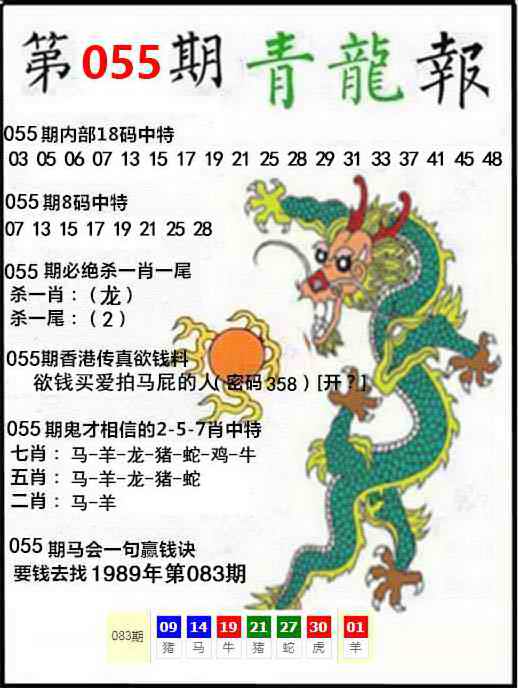 第055期青龍報
055期内部18码中特
03 05 06 07 13 15 17 19 21 25 28 29 31 33 37 41 45 48
055期8码中特
07 13 15 17 19 21 25 28
055 期必绝杀一肖一尾
杀一肖：（龙）
杀一尾：（2）
055期香港传真欲钱料
欲钱买爱拍马屁的人（密码358）[开？]
055期鬼才相信的2-5-7肖中特
七肖：马-羊-龙-猪-蛇-鸡-牛
五肖：马-羊-龙-猪-蛇
二肖：马-羊
055期马会一句赢钱诀
要钱去找1989年第083期
083期 09 14 19 21 27 30 01
猪 马 牛 猪 蛇 虎 羊